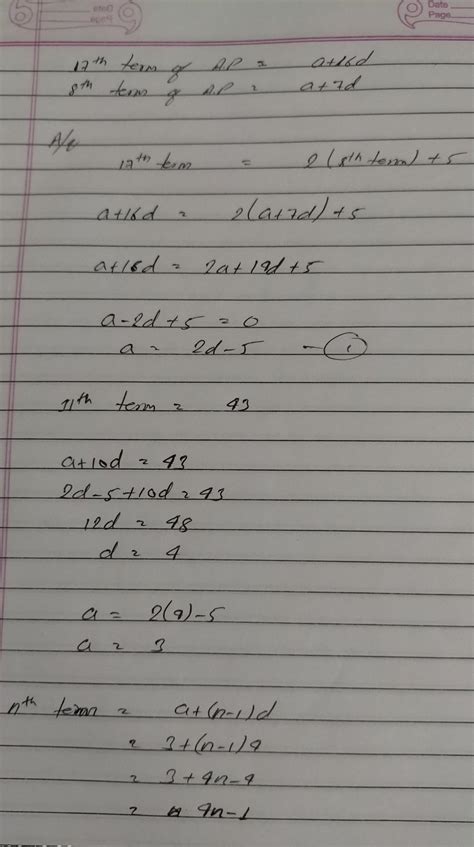 Date
Page
17th term of AP = a+16d
8th term of AP = a+7d
A/q
17th term = 2(8th term) + 5
a+16d = 2(a+7d) + 5
a+16d = 2a+14d+5
a-2d+5 = 0
a = 2d-5 - (i)
11th term = 43
a+10d = 43
2d-5+10d = 43
12d = 48
d = 4
a = 2(4)-5
a = 3
nth term = a+(n-1)d
= 3+(n-1)4
= 3+4n-4
= 4n-1